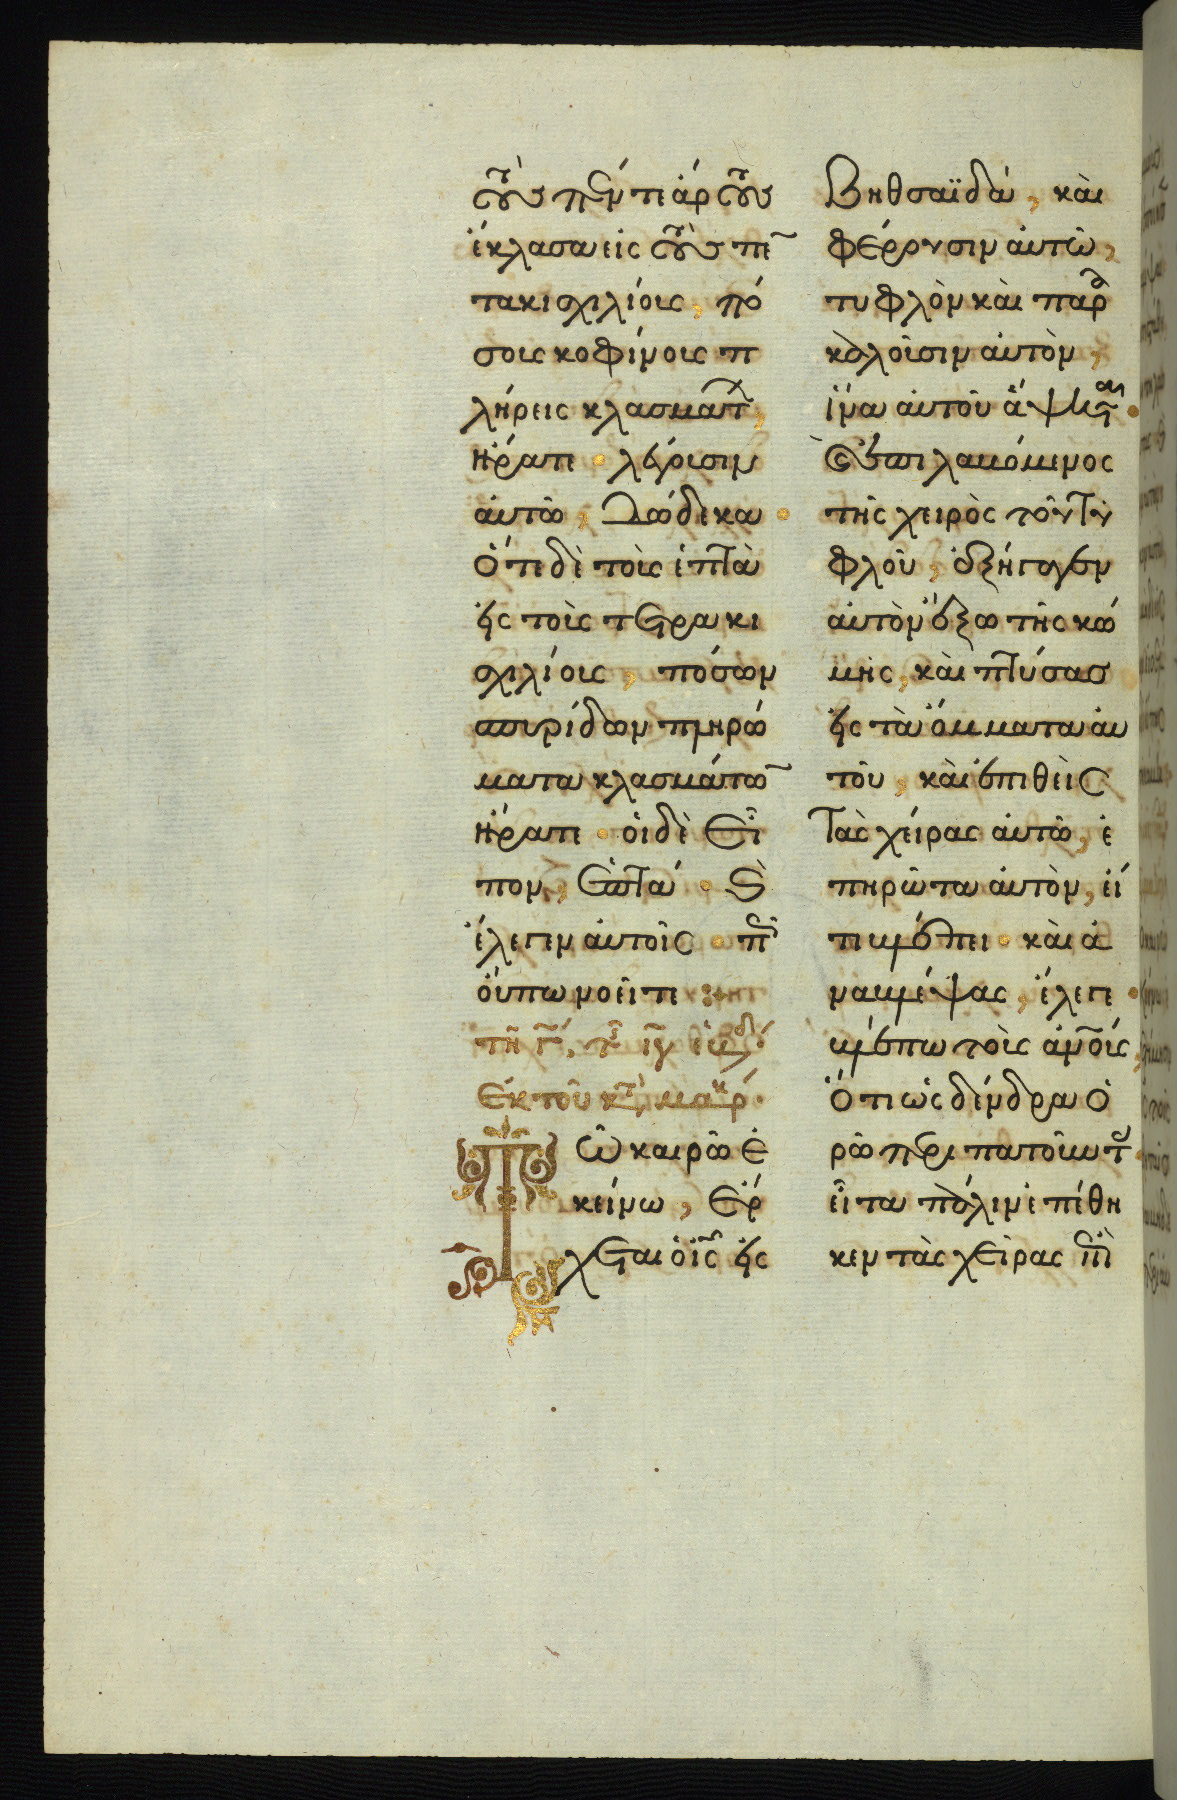 τοὺς πέντε ἄρτους
ἔκλασα εἰς τοὺς πε̃
τακισχιλίοις, πό
σοις κοφίνοις π
λήρεις κλασμάτων,
ἤρατε · λέγουσιν
αὐτῶ, Δώδεκα ·
Ὅτε δὲ τοὺς ἑπτὰ
εἰς τοὺς τετρακι
σχιλίοις, πόσων
σπυρίδων πληρώ
ματα κλασμάτω̃
ἤρατε · οἱ δὲ εἶ
πον, ἑπτά · καὶ
ἔλεγεν αὐτοῖς · πῶς
οὔπω νοεῖτε :
τῆ γ΄,
Ἐκ τοῦ κατὰ μάρ
Τῶ καιρῶ ἐ
κείνω, ἔρ
χεται ὁ ις εἰς
Βηθσαϊδά, καὶ
φέρουσιν αὐτῶ,
τυφλὸν καὶ παρα
καλοῦσιν αὐτὸν,
ἵνα αὐτοῦ ἅψηται ·
καὶ ἐπιλαβόμενος
τῆς χειρὸς τοῦ τυ
φλοῦ, ἐξήγαγεν
αὐτὸν ἔξω τῆς κώ
μης, καὶ πτύσας
εἰς τὰ ὄμματα αὐ
τοῦ, καὶ ἐπιθεὶς
τὰς χείρας αὐτῶ, ἐ
πηρώτα αὐτὸν, εἴ
τι βλέπει · καὶ ἀ
ναβλέψας, ἔλεγε ·
βλέπω τοὺς ἀνους,
Ὅτι ὡς δένδρα ὁ
ρῶ περιπατοῦντας ·
εἶτα πάλιν ἐπέθη
κεν τὰς χεῖρας ἐπὶ